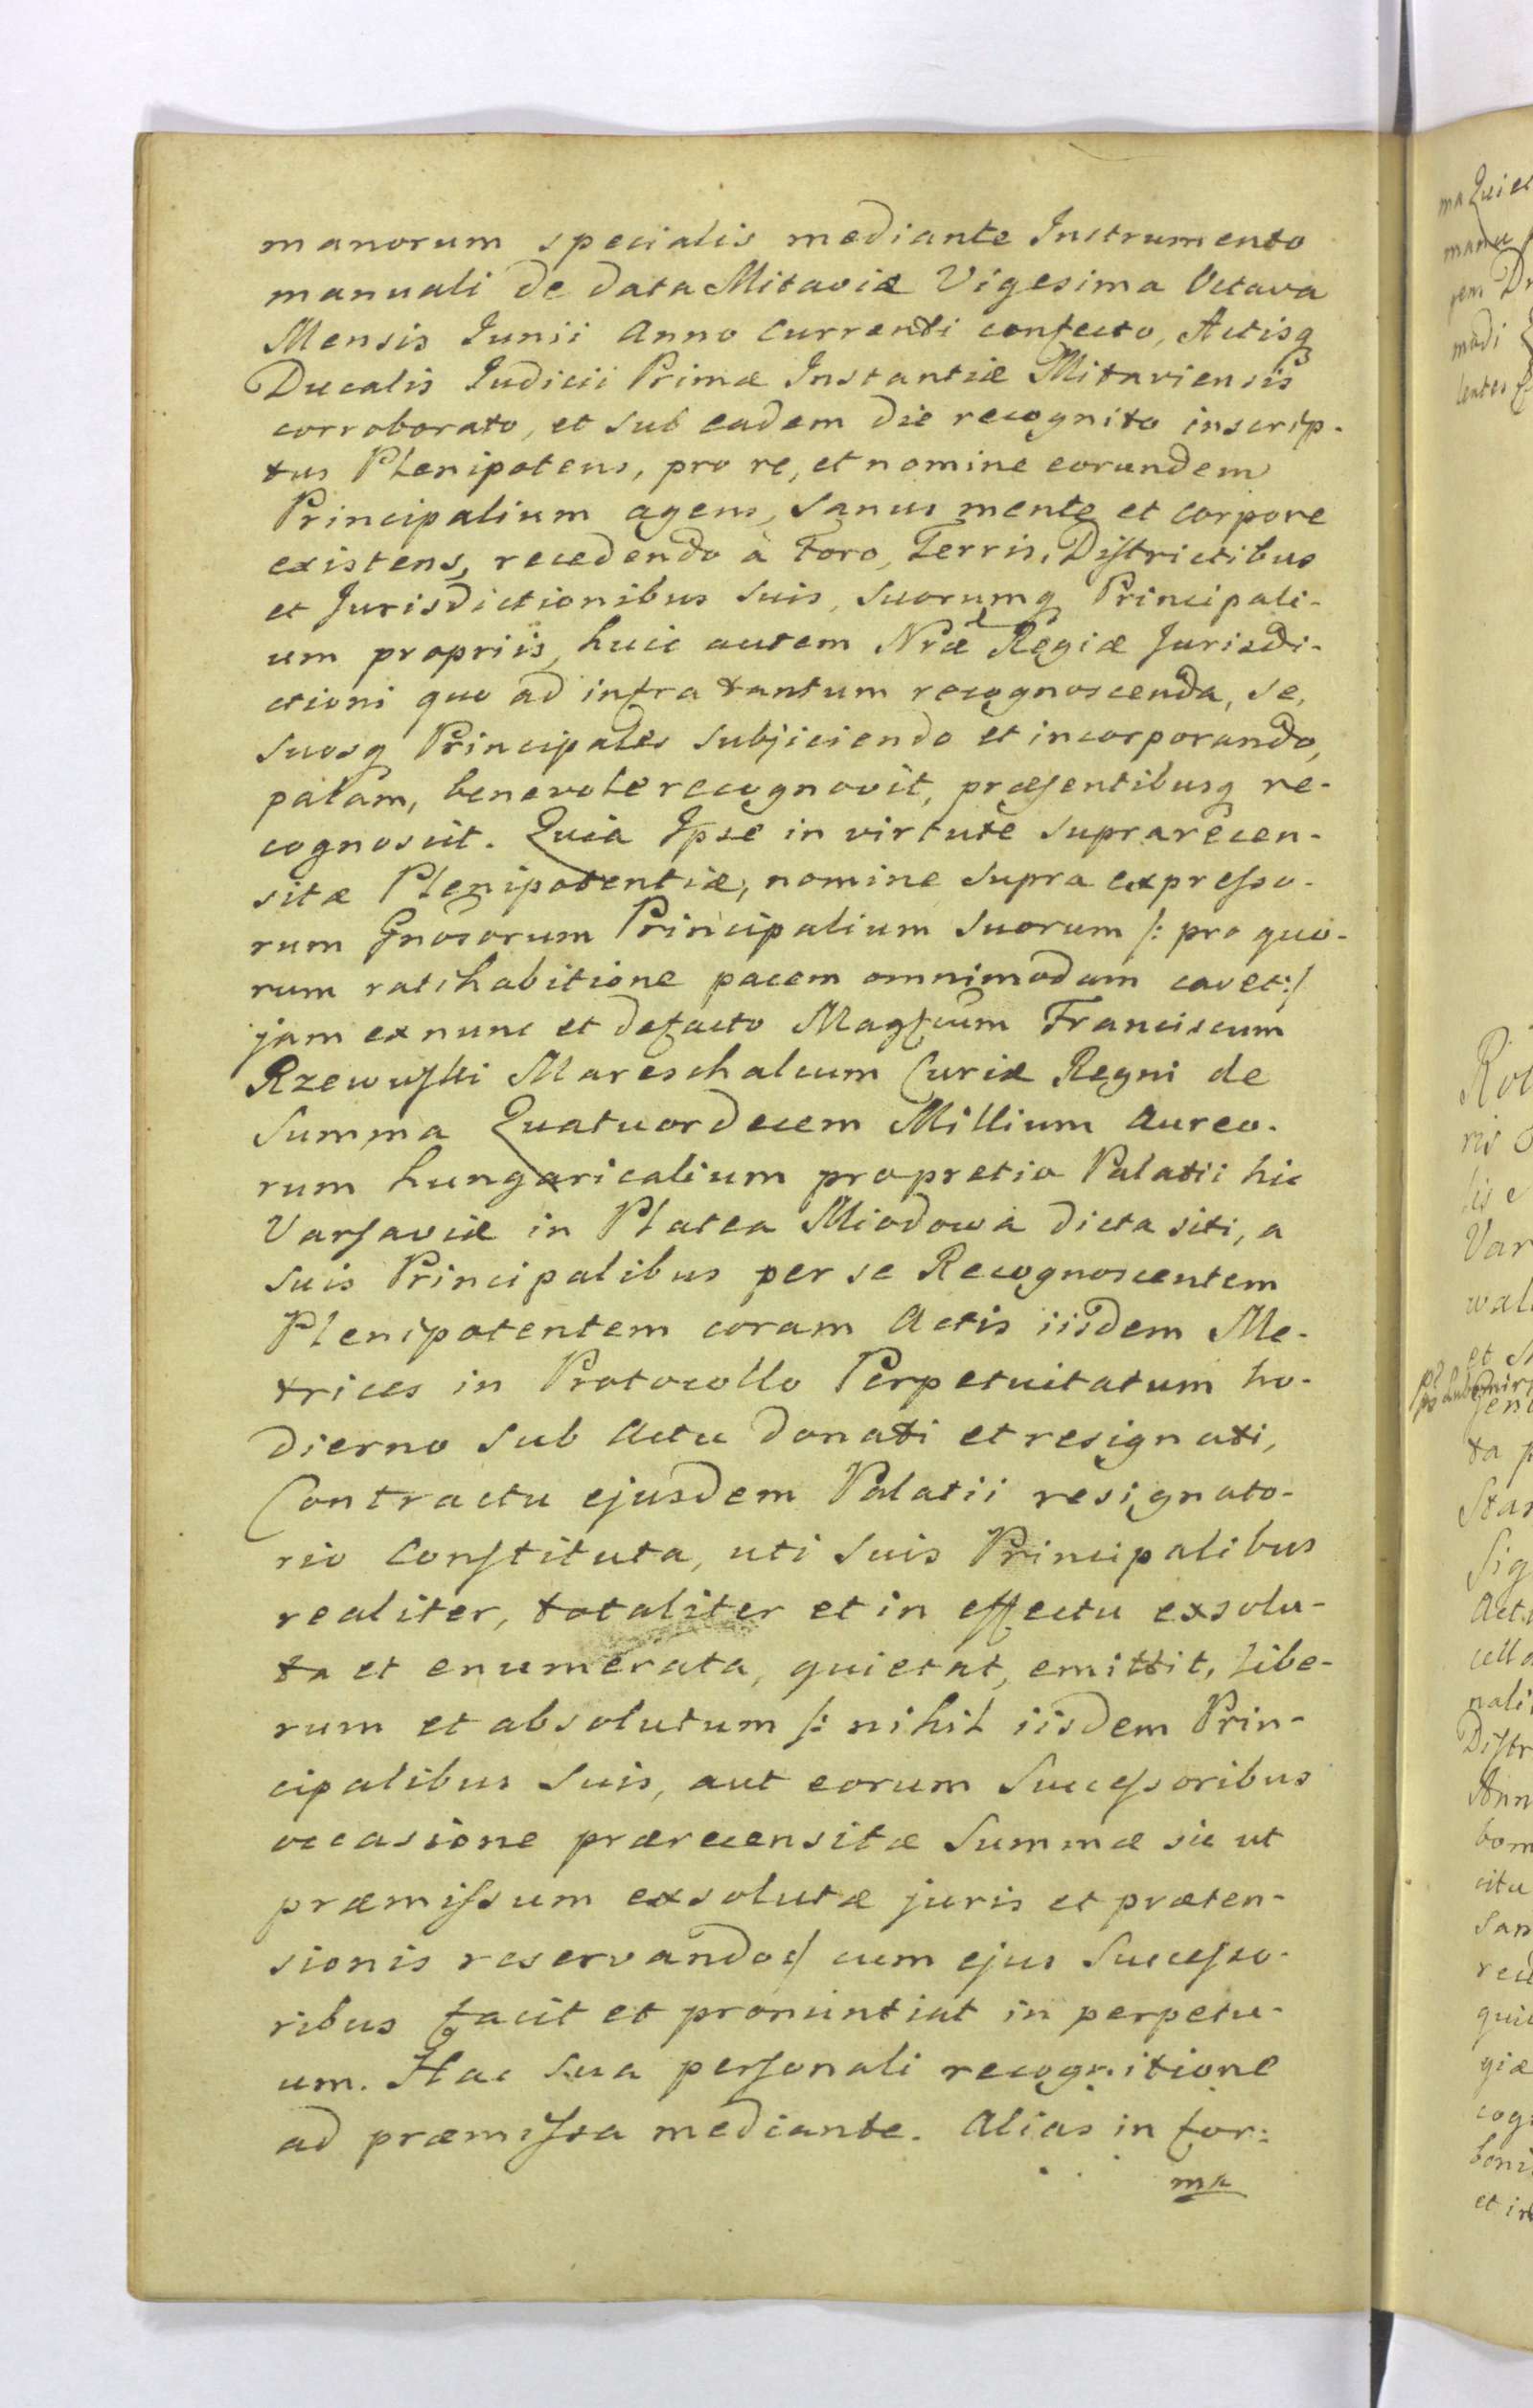 manorum specialis mediante Instrumento
manuali de data Mitaviæ Vigesima Octava
Mensis Junii Anno Currenti confecto, Actisq
Ducalis Judicii Primæ Instantiæ Mitaviensis
corroborato, et sub eadem die recognito inscrip-
tus Plenipotens, pro re, et nomine eorundem
Principalium agens, sanus mente et corpore
existens, recedendo à Foro, Terris, Diſtrictibus
et Jurisdictionibus suis, suorumq Principali-
um propriis, huic autem Nræ Regiæ Jurisdi-
ctioni quo ad infra tantum recognoscenda, se,
suosq Principales subjiciendo et incorporando,
palam, benevole recognovit, præſentibusq re-
cognoscit. Quia Ipse in virtute suprarecen-
sitæ Plenipotentiæ, nomine supra expreſso-
rum Gnosorum Principalium suorum /: pro quo-
rum ratihabitione pacem omnimodam cavet :/
jam ex nunc et defacto Magfcum Franciscum
Rzewuſki Mareschalcum Curiæ Regni de
Summa Quatuordecem Millium Aureo-
rum hungaricalium pro pretio Palatii hic
Varſaviæ in Platea Miodowa dicta siti, a
suis Principalibus per se Recognoscentem
Plenipotentem coram Actis iisdem Me-
trices in Protocollo Perpetuitatum ho-
dierno sub Actu donati et resignati,
Contractu ejusdem Palatii resignato-
rio Conſtituta, uti suis Principalibus
realiter, totaliter et in effectu exsolu-
ta et enumerata, quietat, emittit, libe-
rum et absolutum /: nihil iisdem Prin-
cipalibus suis, aut eorum Succeſsoribus
occasione præcensitæ Summæ sic ut
præmiſsum exsolutæ juris et præten-
sionis reservando :/ cum ejus Succeſso-
ribus facit et pronuntiat in perpetu-
um. Hac sua perſonali recognitione
ad præmiſsa mediante. Alias in for:
ma